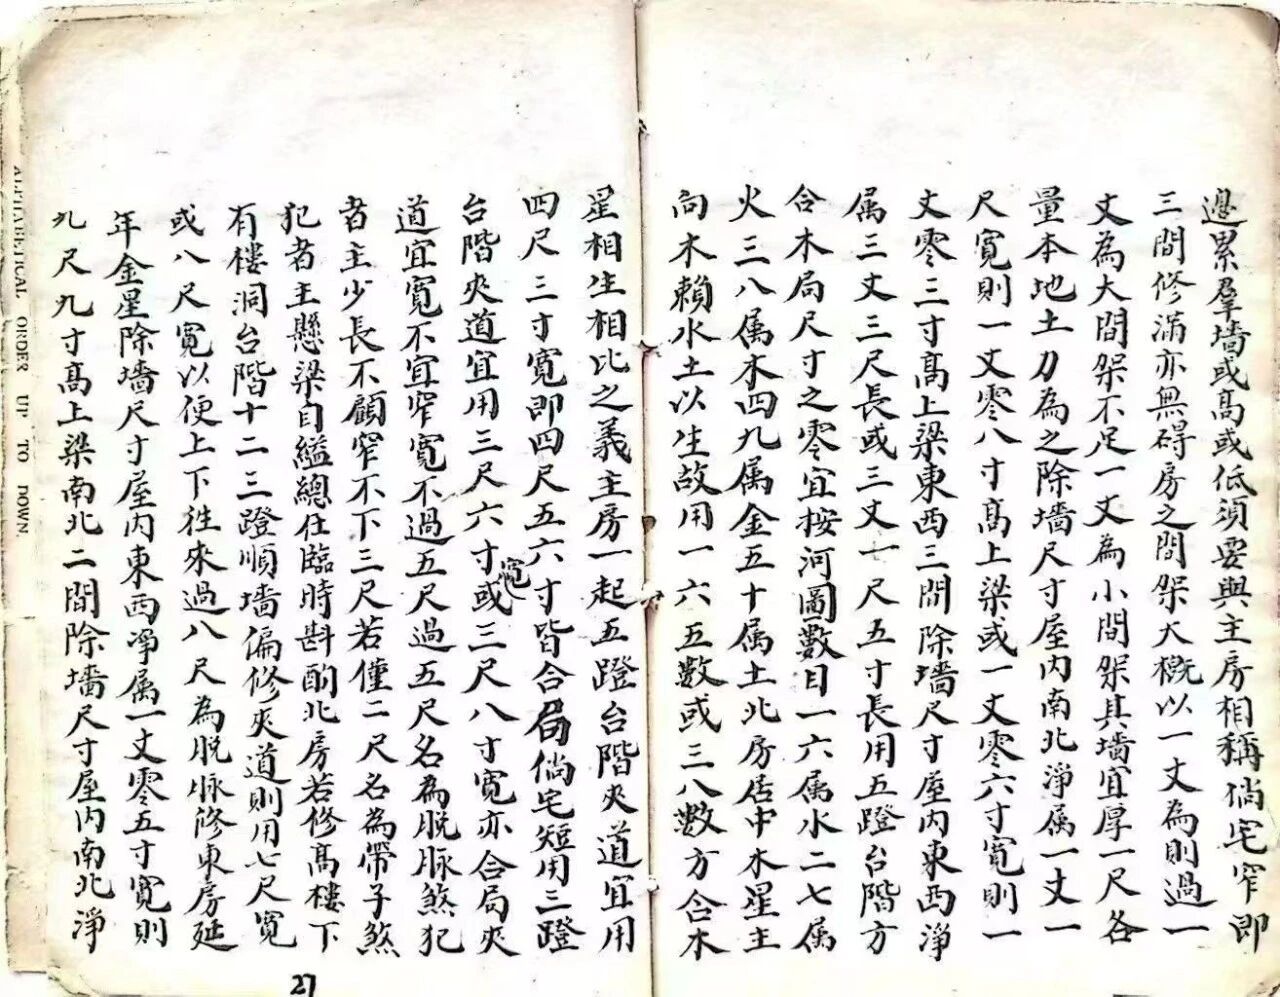 邉累羣墻或髙或低須要與主房相稱倘宅窄即
三間修滿亦無碍房之間架大概以一丈為則過一
丈為大間架不足一丈為小間架其墻宜厚一尺各
量本地土刀為之除墻尺寸屋内南北淨属一丈一
尺寬則一丈零八寸髙上梁或一丈零六寸寬則一
丈零三寸髙上梁東西三間除墻尺寸屋内東西淨
属三丈三尺長或三丈一尺五寸長用五蹬台階方
合木局尺寸之零宜按河圖數目一六属水二七属
火三八属木四九属金五十属土北房居中木星主
向木賴水土以生故用一六五數或三八數方合木
星相生相比之義主房一起五蹬台階夾道宜用
四尺三寸寬即四尺五六寸皆合局倘宅短用三蹬
台階夾道宜用三尺六寸寬或三尺八寸寬亦合局夾
道宜寬不宜窄寬不過五尺過五尺名為脱脉煞犯
者主少長不顧窄不下三尺若僅二尺名為帶子煞
犯者主懸梁自縊總在臨時斟酌北房若修髙樓下
有樓洞台階十二三蹬順墻偏修夾道則用七尺寬
或八尺寬以便上下徃來過八尺為脱脉修東房延
年金星除墻尺寸屋内東西凈属一丈零五寸寬則
九尺九寸髙上梁南北二間除墻尺寸屋内南北淨
27
ALPHABETICAL ORDER UP TO DOWN